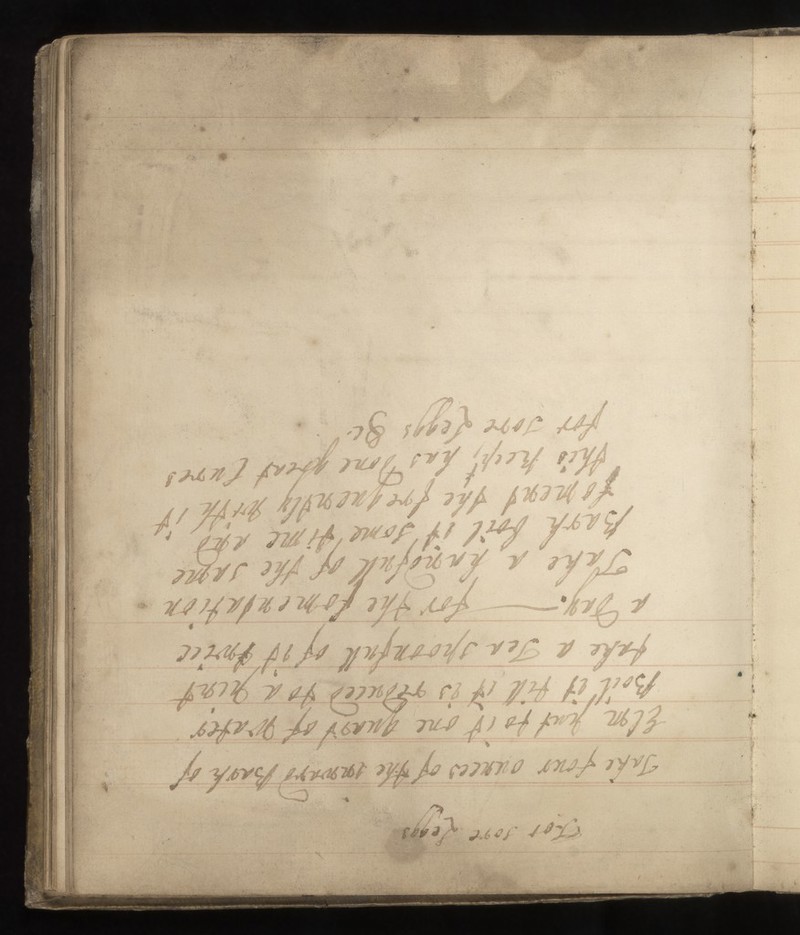 For sore Leggs
Take four ounces of the inward Bark of
Elm put to it one quart of water
Boil it till it is reduced to a pint
take a Tea spoonfull of it twice
a Day. — for the fomentation
Take a handfull of the same
Bark boil it some time and
foment the frequently with it
this has Done great Cures
for sore Leggs &c